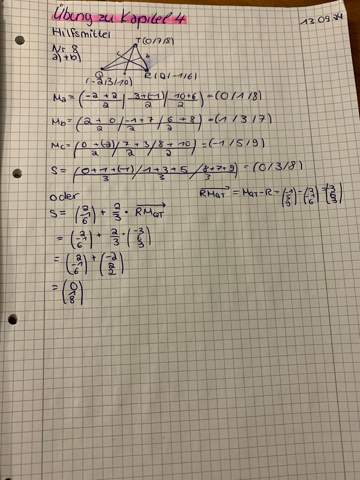 Übung zu Kapitel 4
13.09.24
Hilfsmittel
Nr. 8
a)+b)
T(0/7/8)
Q
(-2/3/10)
R(2/-1/6)
Ma = (-2+2/2 / 3+(-1)/2 / 10+6/2) = (0/1/8)
Mb = (2+0/2 / -1+7/2 / 6+8/2) = (1/3/7)
Mc = (0+(-2)/2 / 7+3/2 / 8+10/2) = (-1/5/9)
S = (0+1+(-1)/3 / 1+3+5/3 / 8+7+9/3) = (0/3/8)
oder
RMQT = MQT - R = (-1 5 9) - (2 -1 6) = (-3 6 3)
S = (2 -1 6) + 2/3 · RMQT
= (2 -1 6) + 2/3 · (-3 6 3)
= (2 -1 6) +
= (0 1 8)